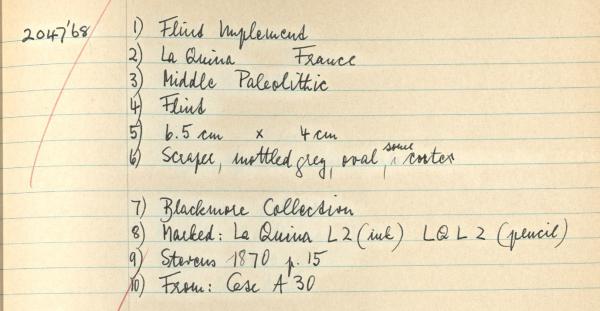 2047'68 1) Flint Implement
2) La Quina France
3) Middle Paleolithic
4) Flint
5) 6.5 cm x 4 cm
6) Scraper, mottled grey, oval, some cortex
7) Blackmore Collection
8) Marked: La Quina L2 (ink) LQL2 (pencil)
9) Stevens 1870 p. 15
10) From: Case A 30